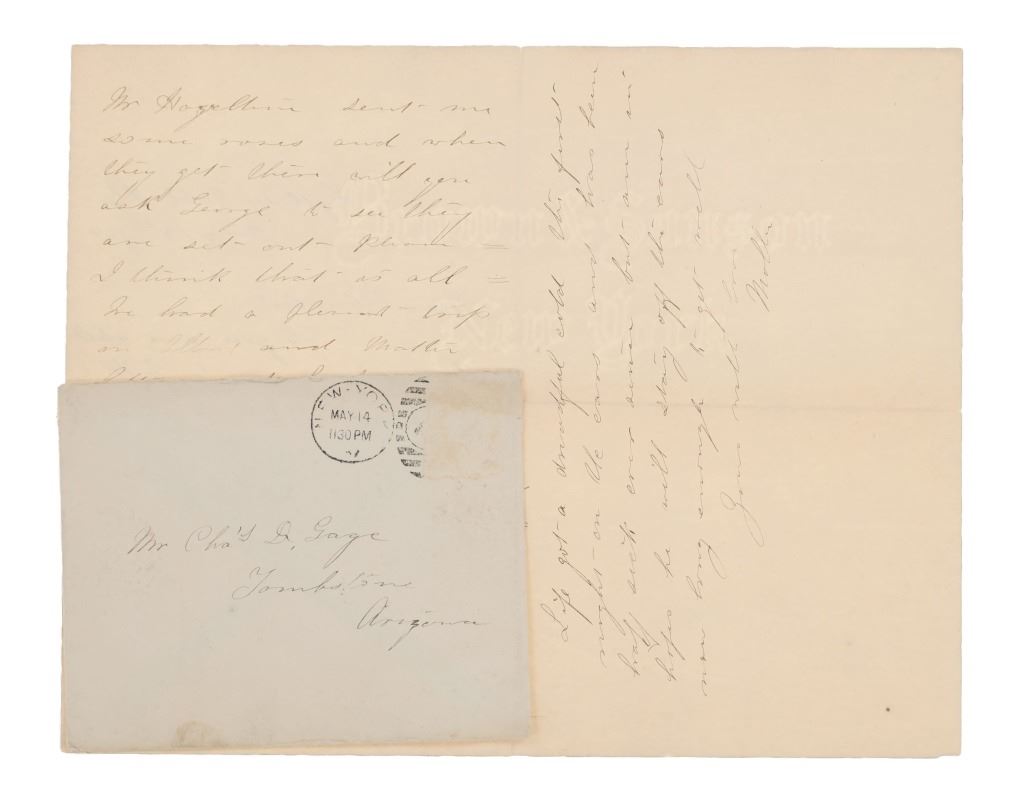 Mr Hazeltine sent me
some roses and when
they get there will you
ask George to see they
are set out Please =
I think that is all =
We had a plesant trip
and Mattie
Life got a dreadful cold the first
night on the cars and has been
half sick ever since but am in
hopes he will stay off the cars
now long enough to get well
Your with love
Mother
NEW-YORK
MAY 14
1130PM
Mr Cha's D. Gage
Tombstone
Arizona